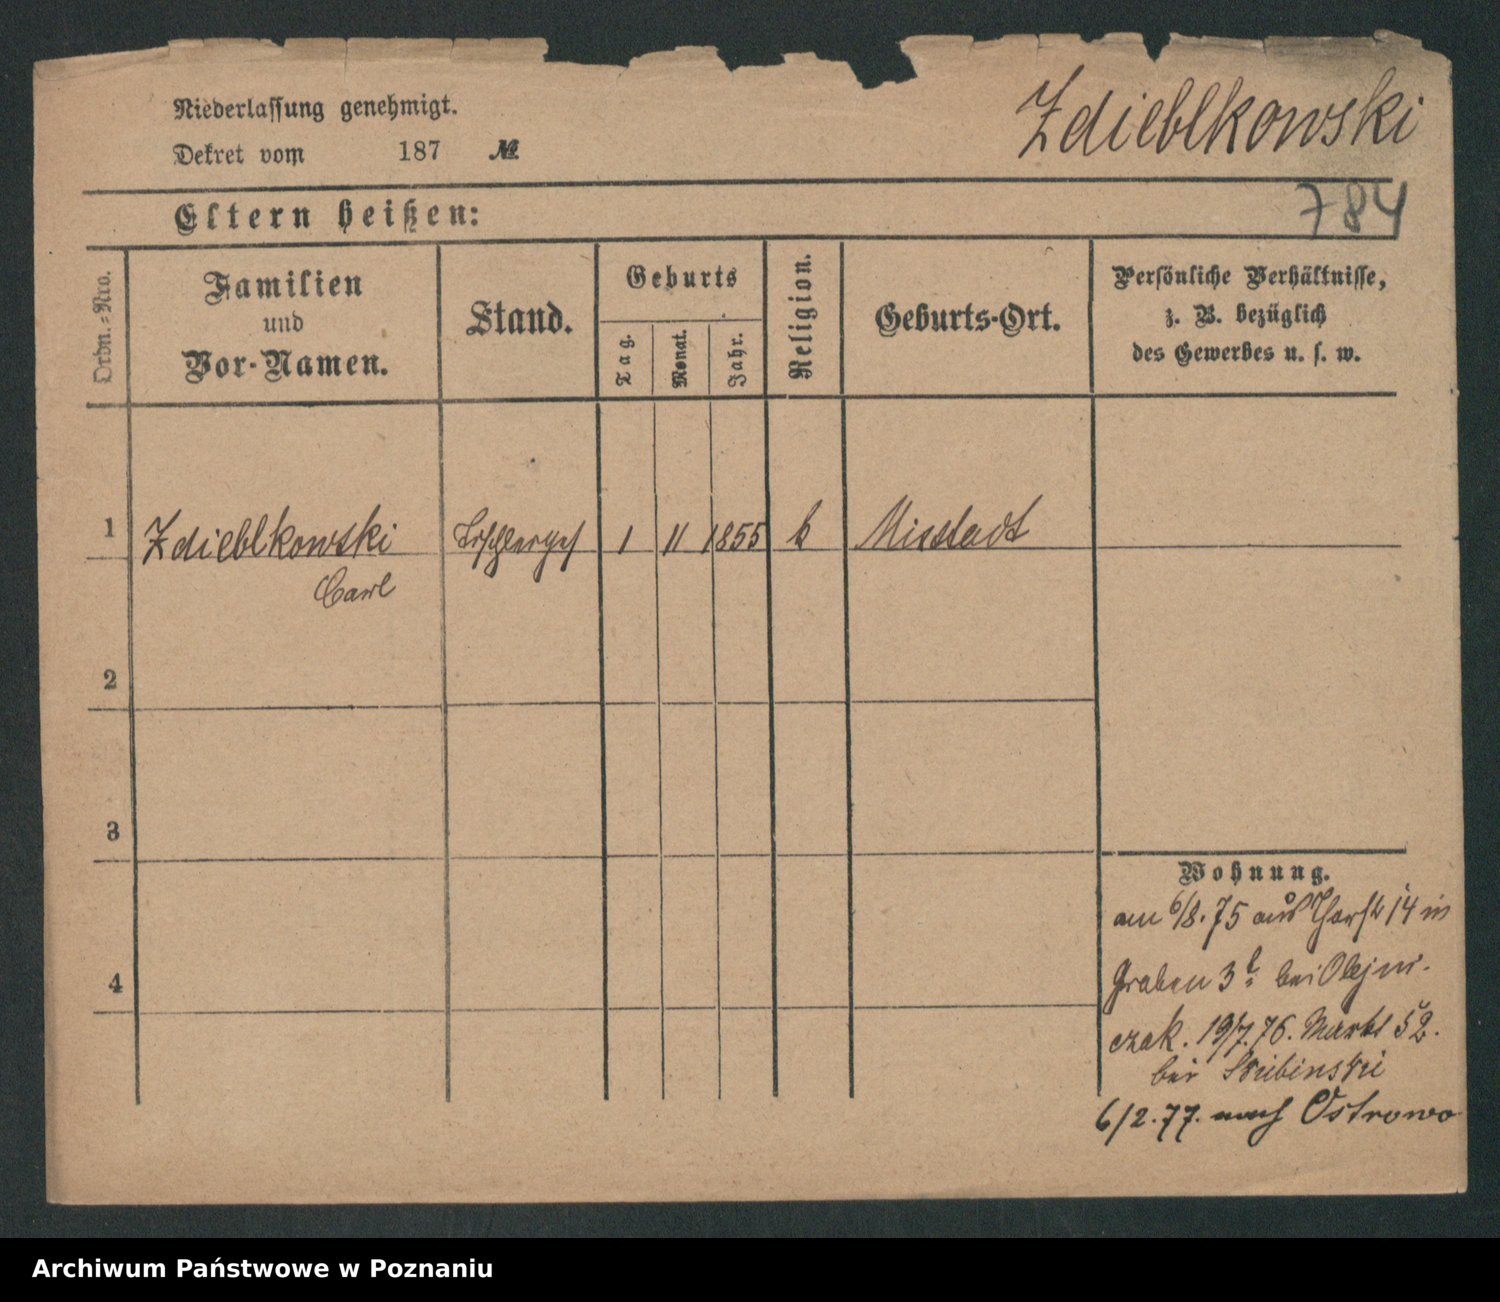 Niederlassung genehmigt.
Dekret vom 187 №
Zdieblkowski
784
Eltern heißen:
Ordn.-Nro.
Familien
und
Vor-Namen.
Stand.
Geburts
Tag.
Monat.
Jahr.
Religion.
Geburts-Ort.
Persönliche Verhältnisse,
z. B. bezüglich
des Gewerbes u. s. w.
1 Zdieblkowski Tischlerges 1 11 1855 k Mixstadt
Carl
2
3
4
Wohnung.
am 6/8. 75 aus 14 in
Graben 3 bei Olejni-
czak. 19/7. 76. Markt 52.
bei Skubinski
6/2. 77. nach Ostrowo
Archiwum Państwowe w Poznaniu